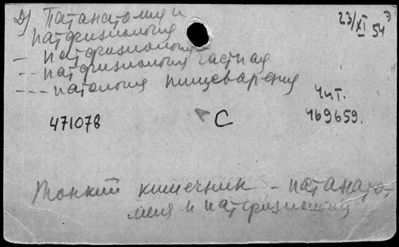 д) Патанатомия и
патфизиология
23/XI 54
– патфизиология
-- патфизиология частная
--- патология пищеварения
Чит.
471078
С
469659.
Тонкий кишечник – патанато-
мия и патфизиология